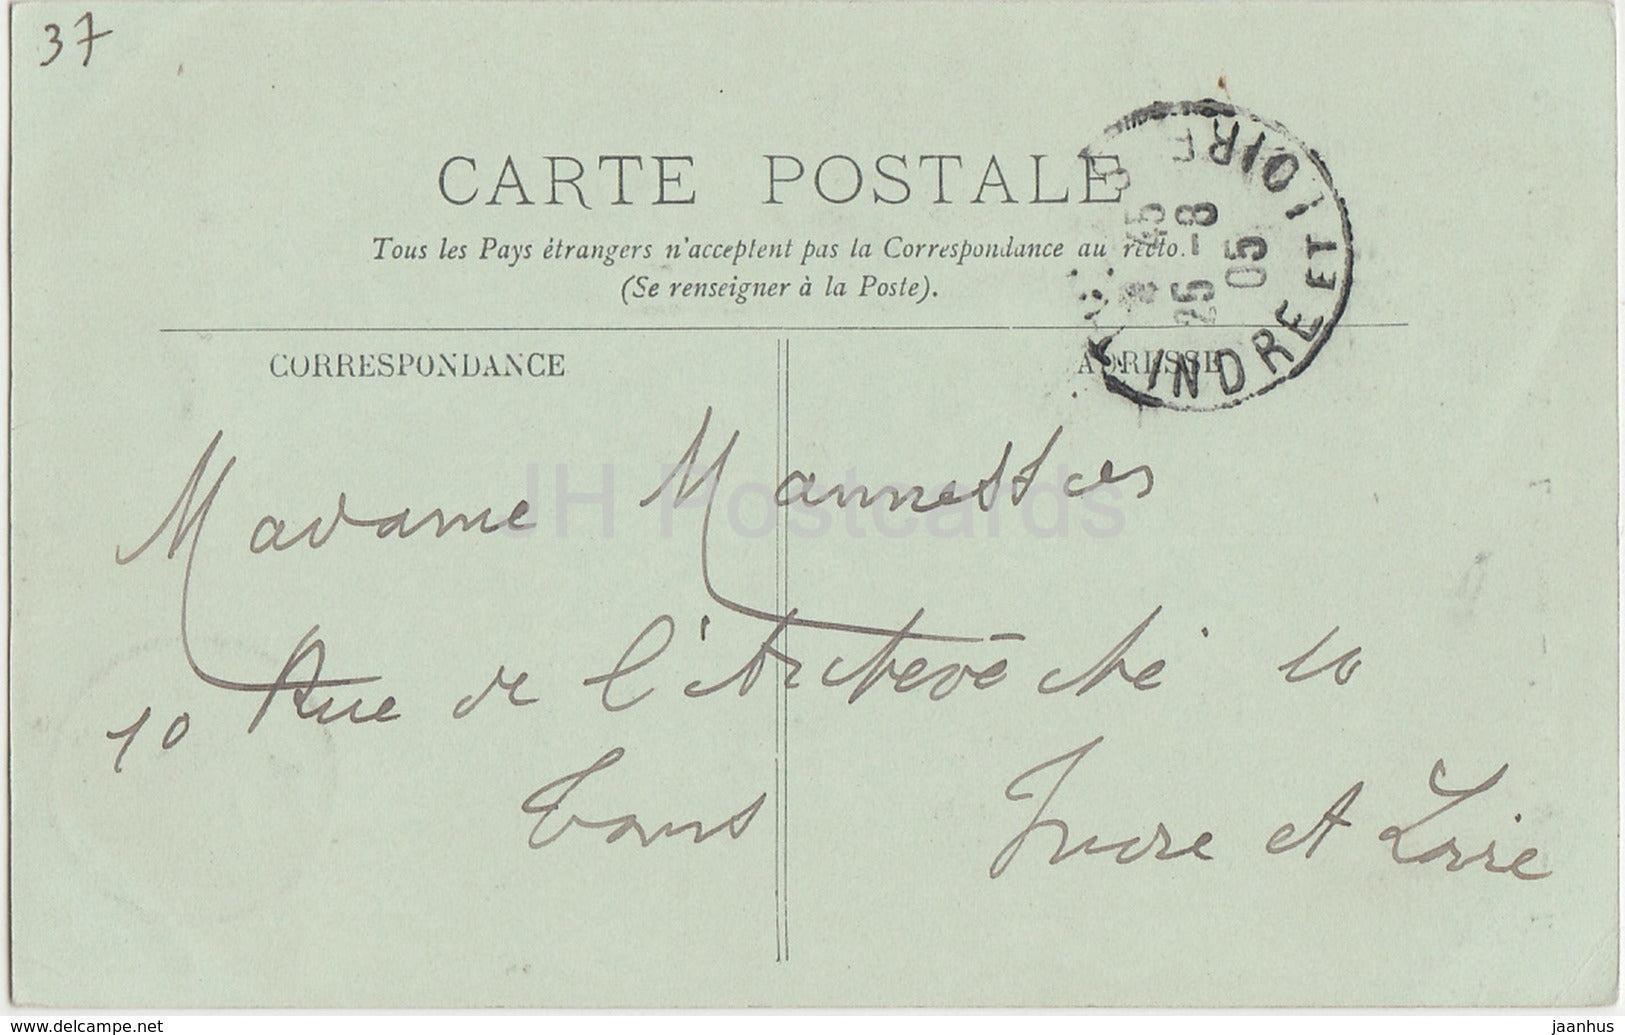 37
CARTE POSTALE
Tous les Pays étrangers n'acceptent pas la Correspondance au recto.
(Se renseigner à la Poste).
CORRESPONDANCE
ADRESSE
INDRE ET LOIRE
45
25 - 8
05
Madame
10 Rue de l'Archevêché 10
Tours Indre et Loire
JH Postcards
www.delcampe.net
jaanhus